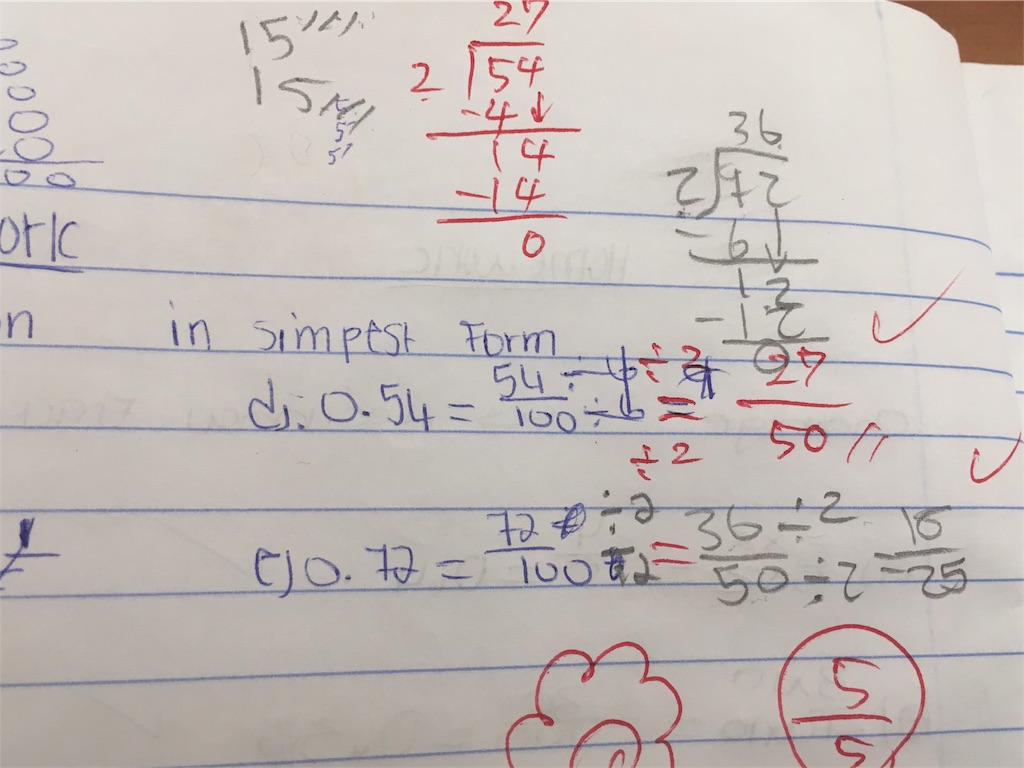 15
15
27
2 54
-4↓
14
-14
0
36
2 72
-6↓
12
-12
0
in Simpest Form
d). 0.54 = 54/100 ÷2/÷2 = 27/50 //
e) 0.72 = 72/100 ÷2/÷2 = 36/50 ÷2/÷2 = 18/25
5/5